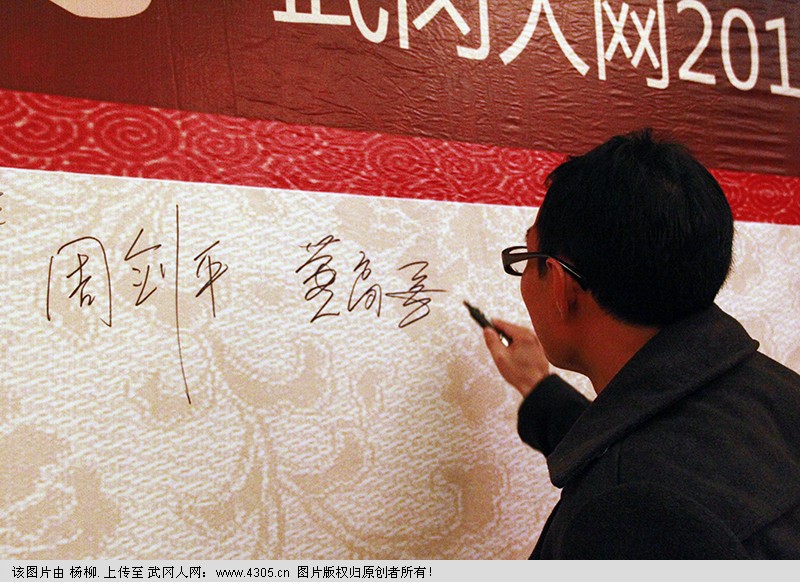 武冈人网201
周剑平
该图片由 杨柳. 上传至 武冈人网：www.4305.cn 图片版权归原创者所有！